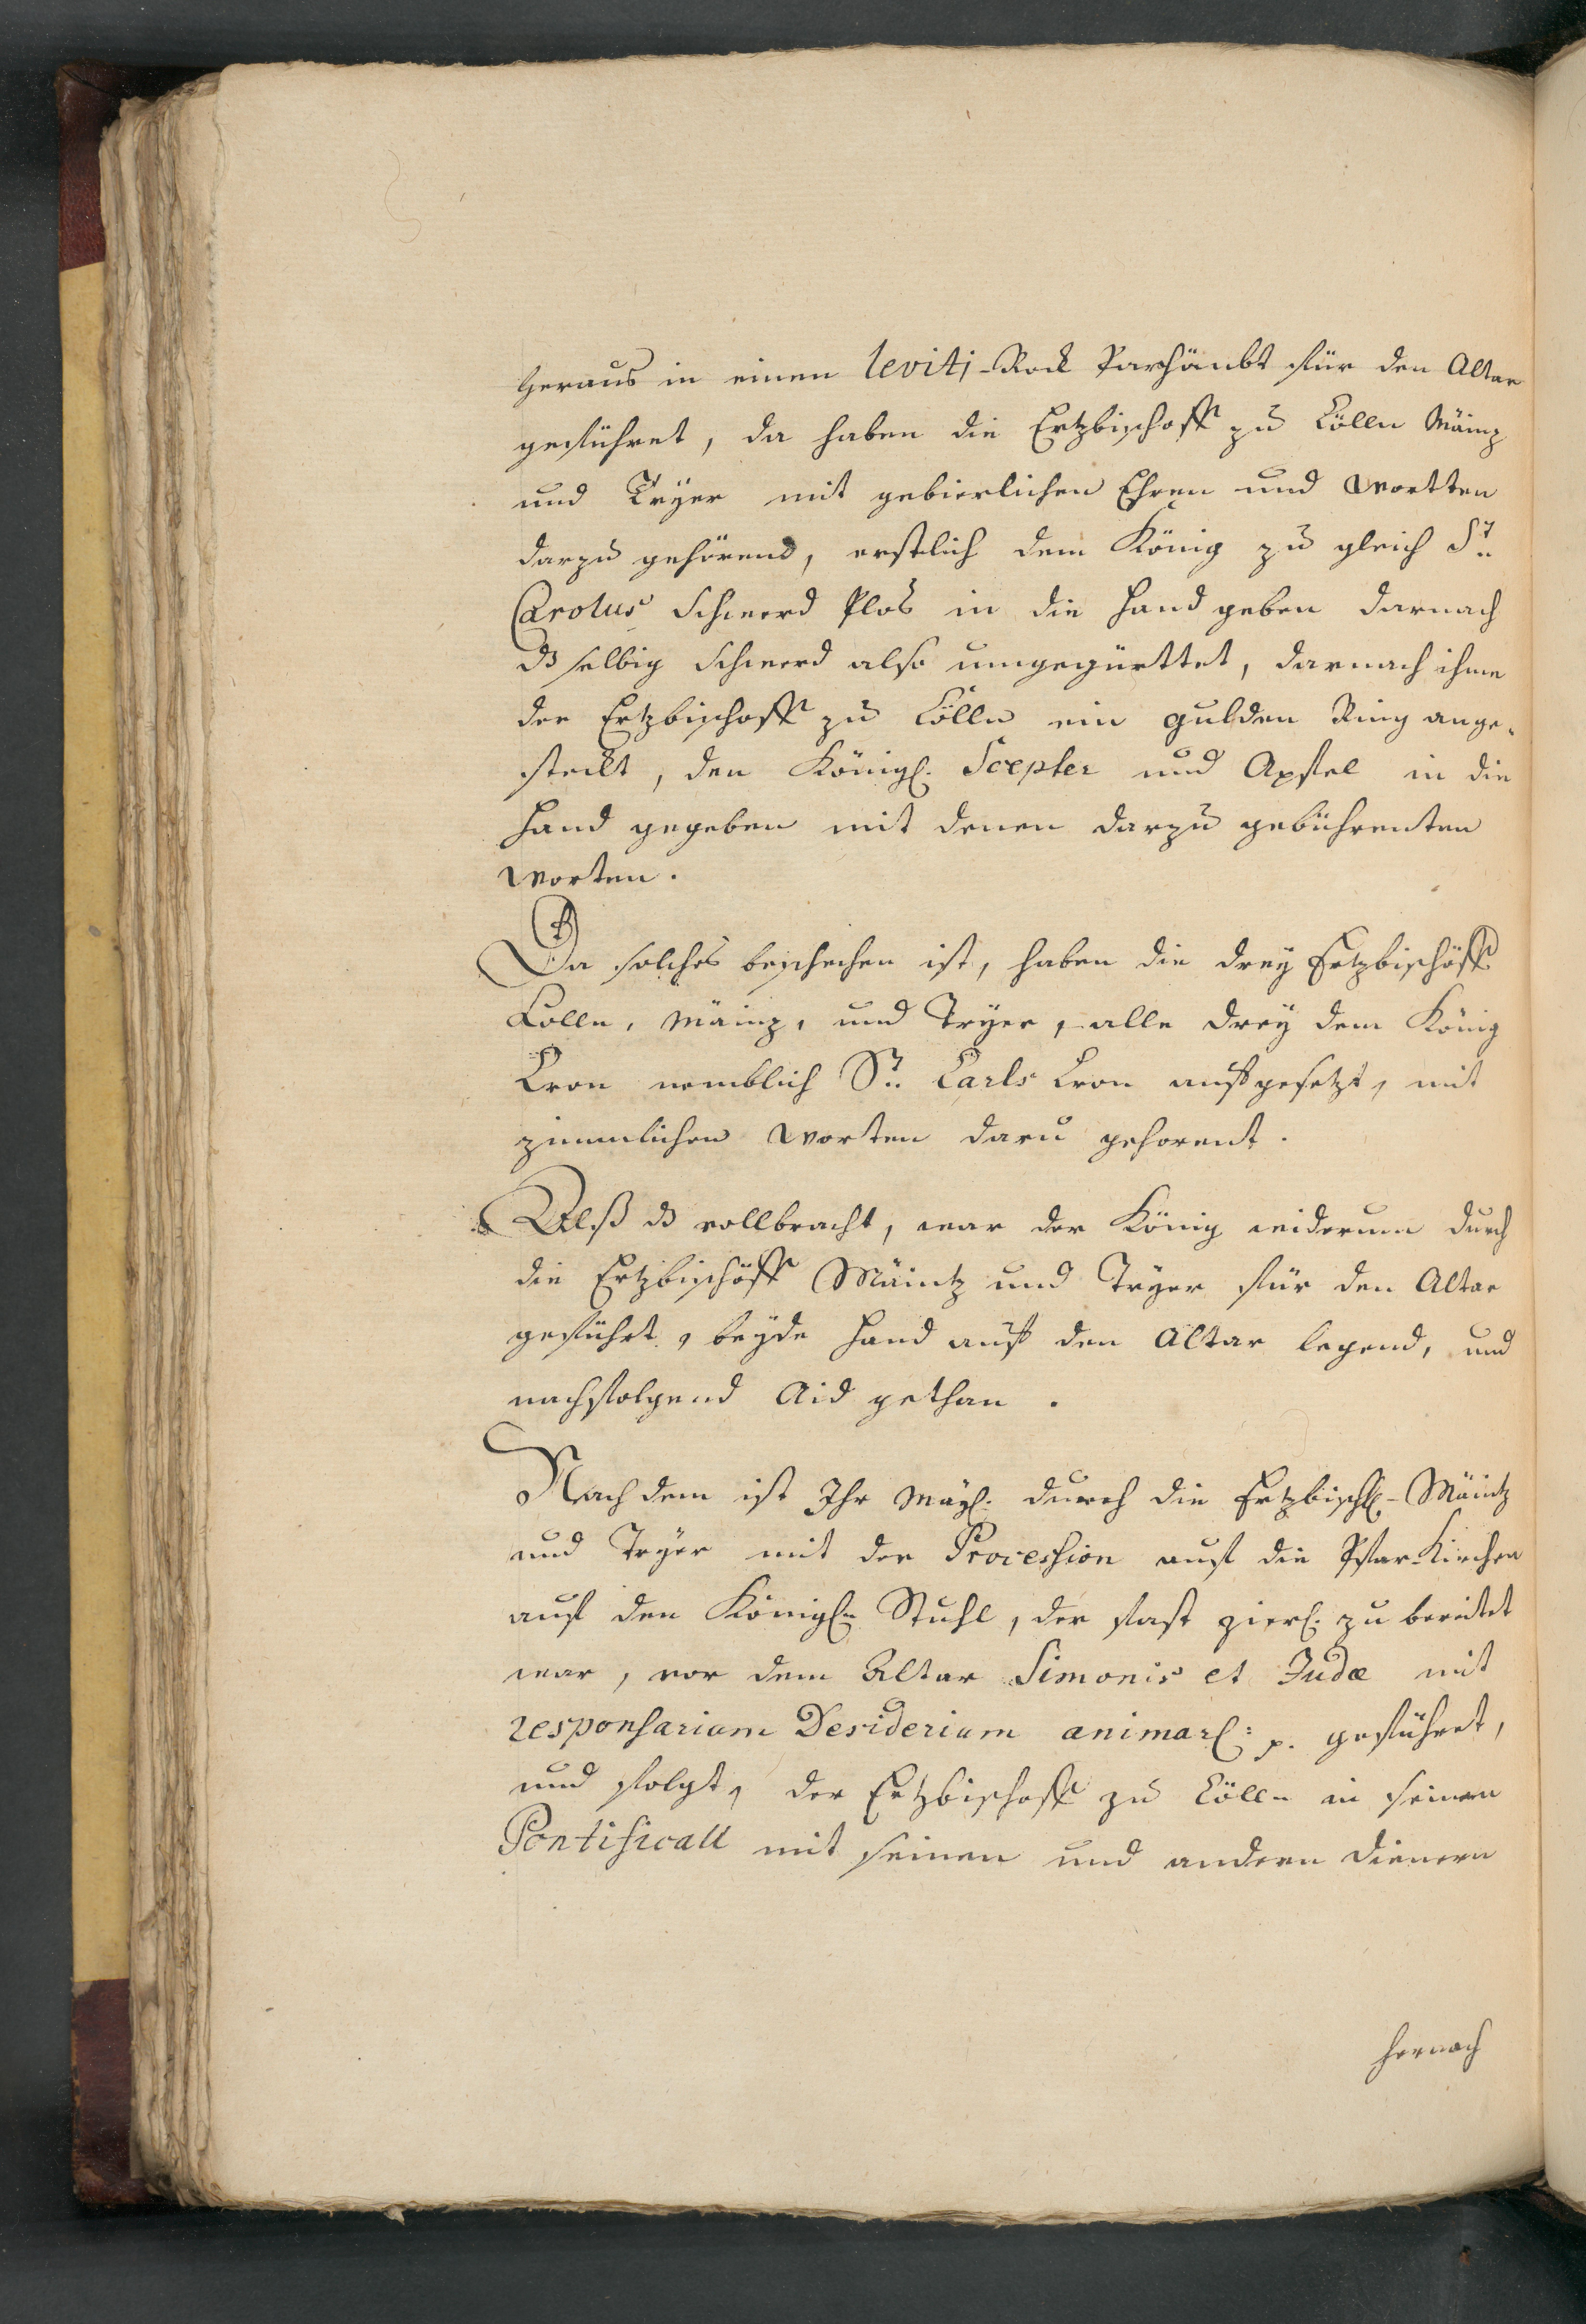 heraus in einen leviti-Rock Parhäubt für den Altar
geführet, da haben die Ertzbischoff zu Cölln Mäinz
und Tryer mit gebierlichen Ehren und wortten
darzu gehörend, erstlich dem König zu gleich St:
Carolus Schwerd Plos in die Hand geben darnach
ds selbig Schwerd also umgegürttet, darnach ihme
der Ertzbischoff zu Cölln ein gulden Ring ange-
steckt, den Königl. Scepter und Apfel in die
Hand gegeben mit denen darzu gebührenten
worten.
Da solches beschechen ist, haben die drey Ertzbischöff
Cölln, Mäinz, und Tryer, alle drey dem König
Cron nemblich St: Carls Cron aufgesetzt, mit
zimmlichen worten daru gehorent.
Alß ds vollbracht, war der König widerum durch
die Ertzbischöff Mäintz und Tryer für den Altar
geführt, beyde Hand auf den Altar legend, und
nachfolgend Aid gethan.
Nach dem ist Ihr Mayl. durch die Ertzbischl- Mäintz
und Tryer mit der Procession auf die Pfar-Kirchen
auf den Königln Stuhl, der fast zierl. zu bereitet
war, vor dem Altar Simonis et Judæ mit
responsarium Desiderium animarl: p. geführet,
und folgt, der Ertzbischoff zu Cölln in seinen
Pontificall mit seinen und andern dienern
hernach